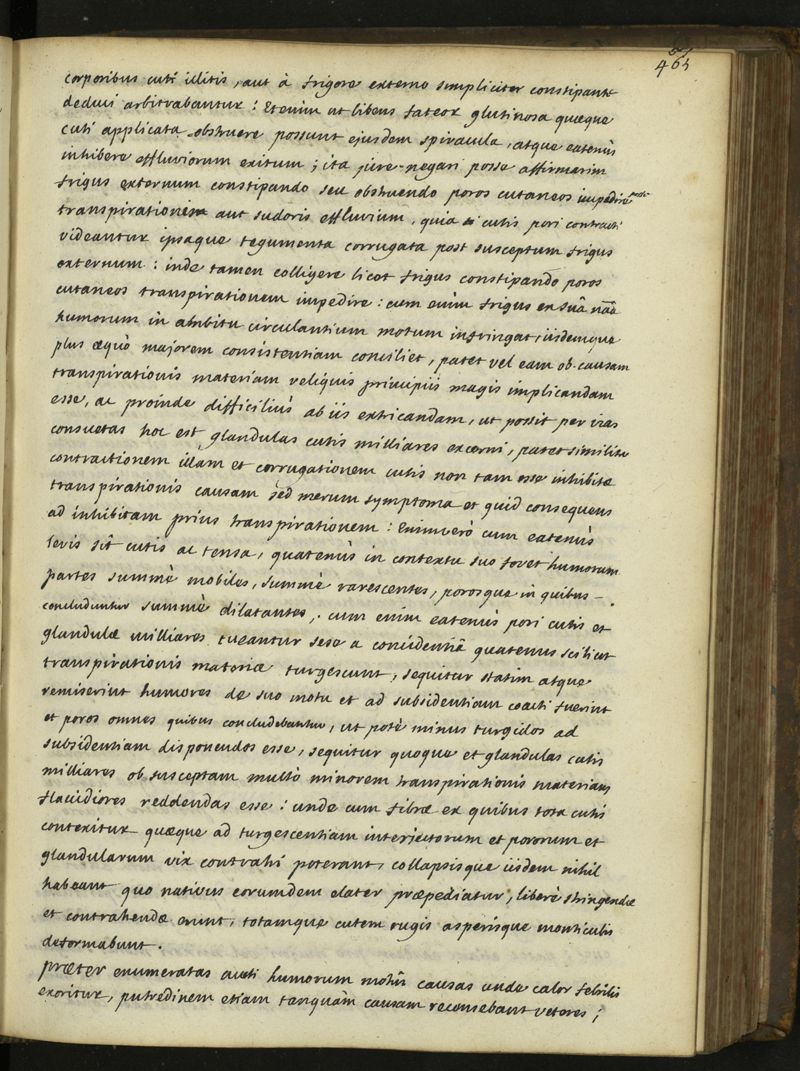 465
corporibus cuti illitis, aut à frigore externo simpliciter constipante
deduci arbitrabantur: Etenim ut libens fateor glutinosa quæque
cuti applicata obstruere possunt ejusdem spiracula, atque eatenùs
inhibere effluviorum exitum; ita jure negari posse affirmarim
frigus externum constipando seu obstruendo poros cutaneos impedire
transpirationem aut sudoris effluvium, quia cutis pori contracti
videantur ipsaque tegumenta corrugata post susceptum frigus
externum: inde tamen colligere licet frigus constipando poros
cutaneos transpirationem impedire: cum enim frigus ex suâ nãã
humorum in ambitu circulantium motum infringat, iisdemque
plus æquò majorem consistentiam conciliet, patet vel eam ob causam
transpirationis materiam reliquis principiis magis implicandam
esse, ac proinde difficiliùs ab iis extricandam, ut possit per vias
consuetas hoc est glandulas cutis milliares excerni, patet similiter
contractionem illam et corrugationem cutis non tam esse inhibitæ
transpirationis causam sed merum symptoma et quid consequens
ad inhibitam prius transpirationem: Enimverò cum eatenùs
levis sit cutis ac tensa, quatenùs in contextu suo fovet humorum
partes summè mobiles, summè rarescentes, porosque in quibus –
concluduntur summè dilatantes, cum enim eatenùs pori cutis et
glandulæ milliares tueantur sese a concidentiâ quatenus scilicet
transpirationis materiæ turgescunt, sequitur statim atque
remiserint humores de suo motu et ad subsidentiam coacti fuerint
et poros omnes quibus concludebantur, ut potè minus turgidos ad
subsidentiam disponendos esse, sequitur quoque et glandulas cutis
milliares ob susceptam multò minorem transpirationis materiam
flaccidiores reddendas esse: unde cum fibræ ex quibus tota cutis
contexitur quæque ad turgescentiam interjectorum et pororum et
glandularum vix contrahi poterant, collapsisque iisdem nihil
habeant quo nativus eorumdem elater præpediatur, liberè stringendæ
et contrahendæ erunt, totamque cutem rugis asperisque monticulis
deformabunt.
præter enumeratas aucti humorum motûs causas unde calor febrilis
exoritur, putredinem etiam tanquàm causam recensebant veteres;